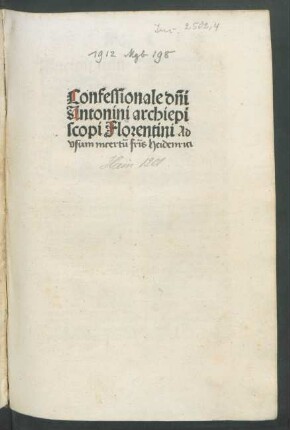 Inc. 2502,4
1912 Mgb 198
Confessionale dñi
Antonini archiepi
scopi Florentini Ad
vsum incertũ fr̃is Heidenrici
Hain 1201